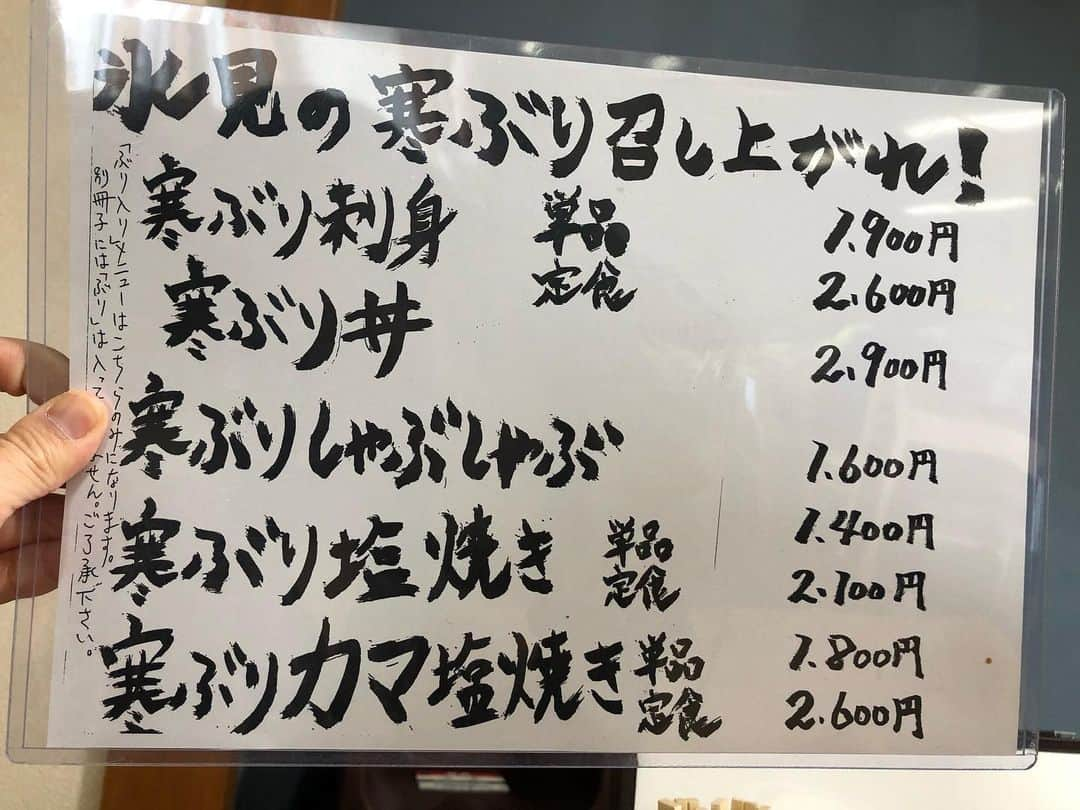 氷見の寒ぶり召し上がれ!
寒ぶり刺身 単品 1.900円
定食 2.600円
寒ぶり丼 2.900円
寒ぶりしゃぶしゃぶ 1.600円
寒ぶり塩焼き 単品 1.400円
定食 2.100円
寒ぶりカマ塩焼き 単品 1.800円
定食 2.600円
「ぶり入り」メニューはこちらのみになります。
別冊子には「ぶり」は入って せん。ご了承下さい。